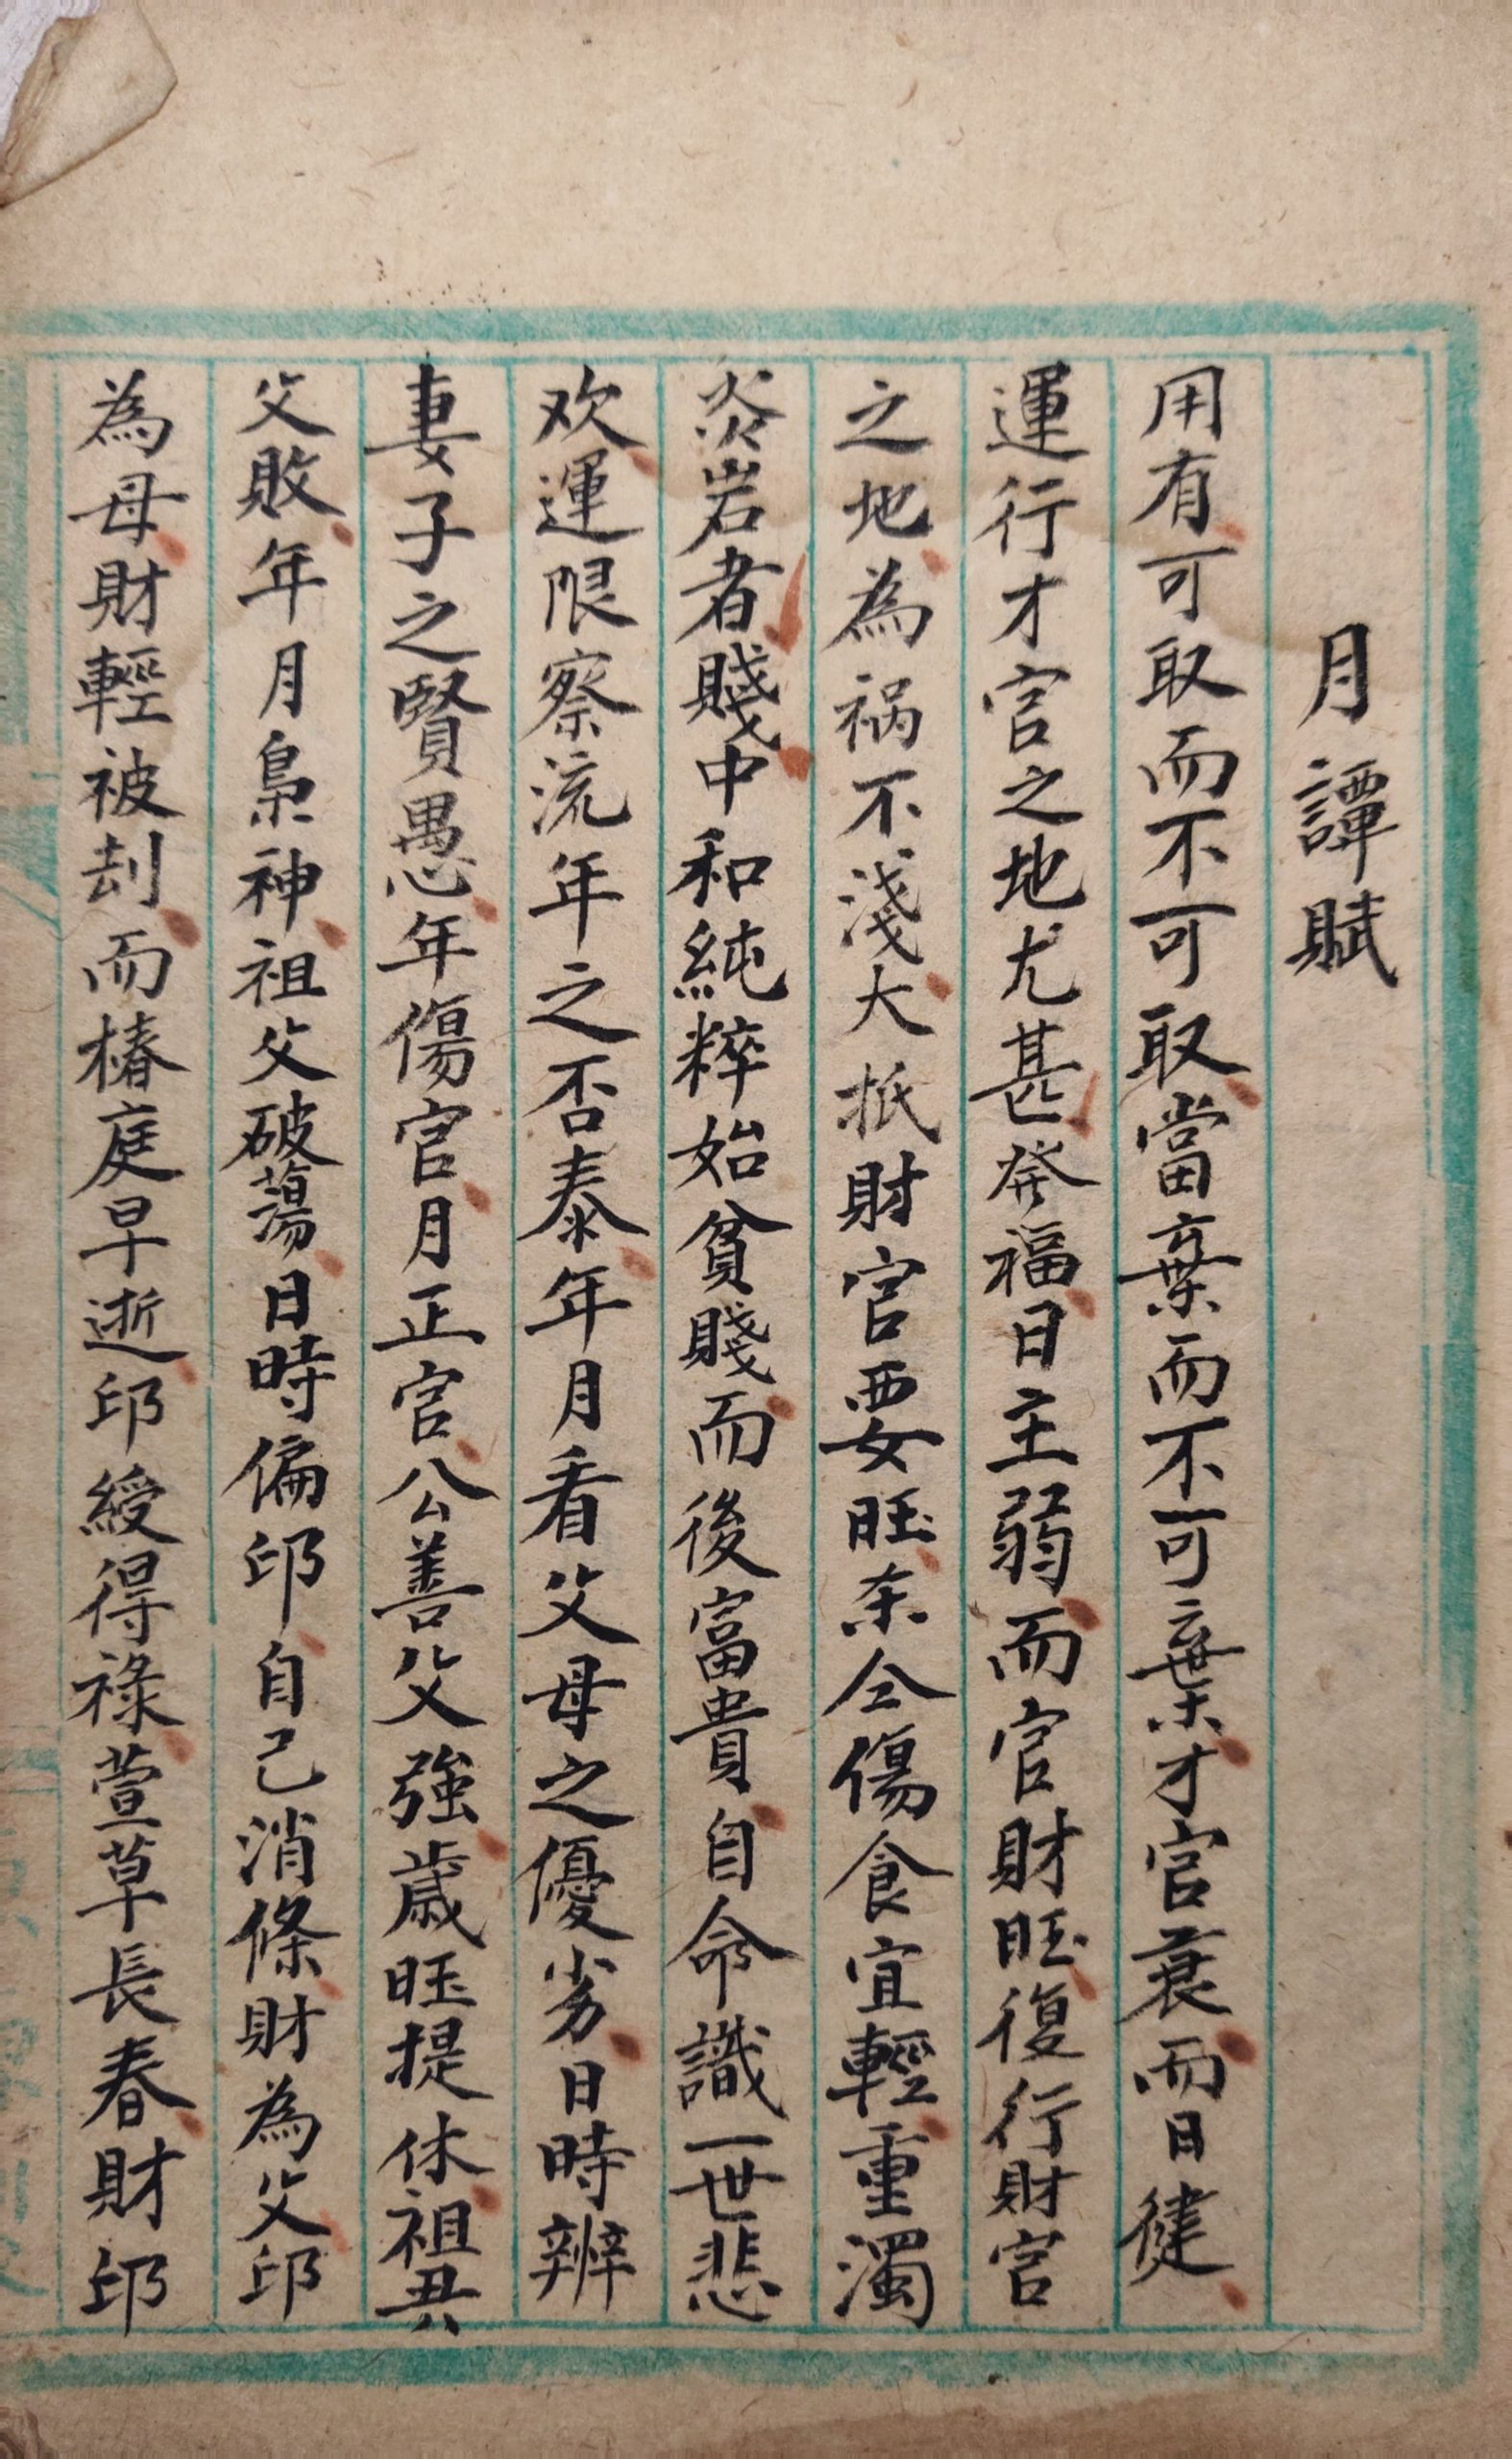 月譚賦
用有可取而不可取當棄而不可棄才官衰而日健
運行才官之地尤甚発福日主弱而官財旺復行財官
之地為祸不淺大抵財官要旺柰仝傷食宜輕重濁
炎岩者賤中和純粹始貧賤而後富貴自命識一世悲
欢運限察流年之否泰年月看父母之優劣日時辨
妻子之賢愚年傷官月正官公善父強歳旺提休祖興
父敗年月梟神祖父破蕩日時偏印自己消條財為父印
為母財輕被刦而椿庭早逝印綬得祿萱草長春財印